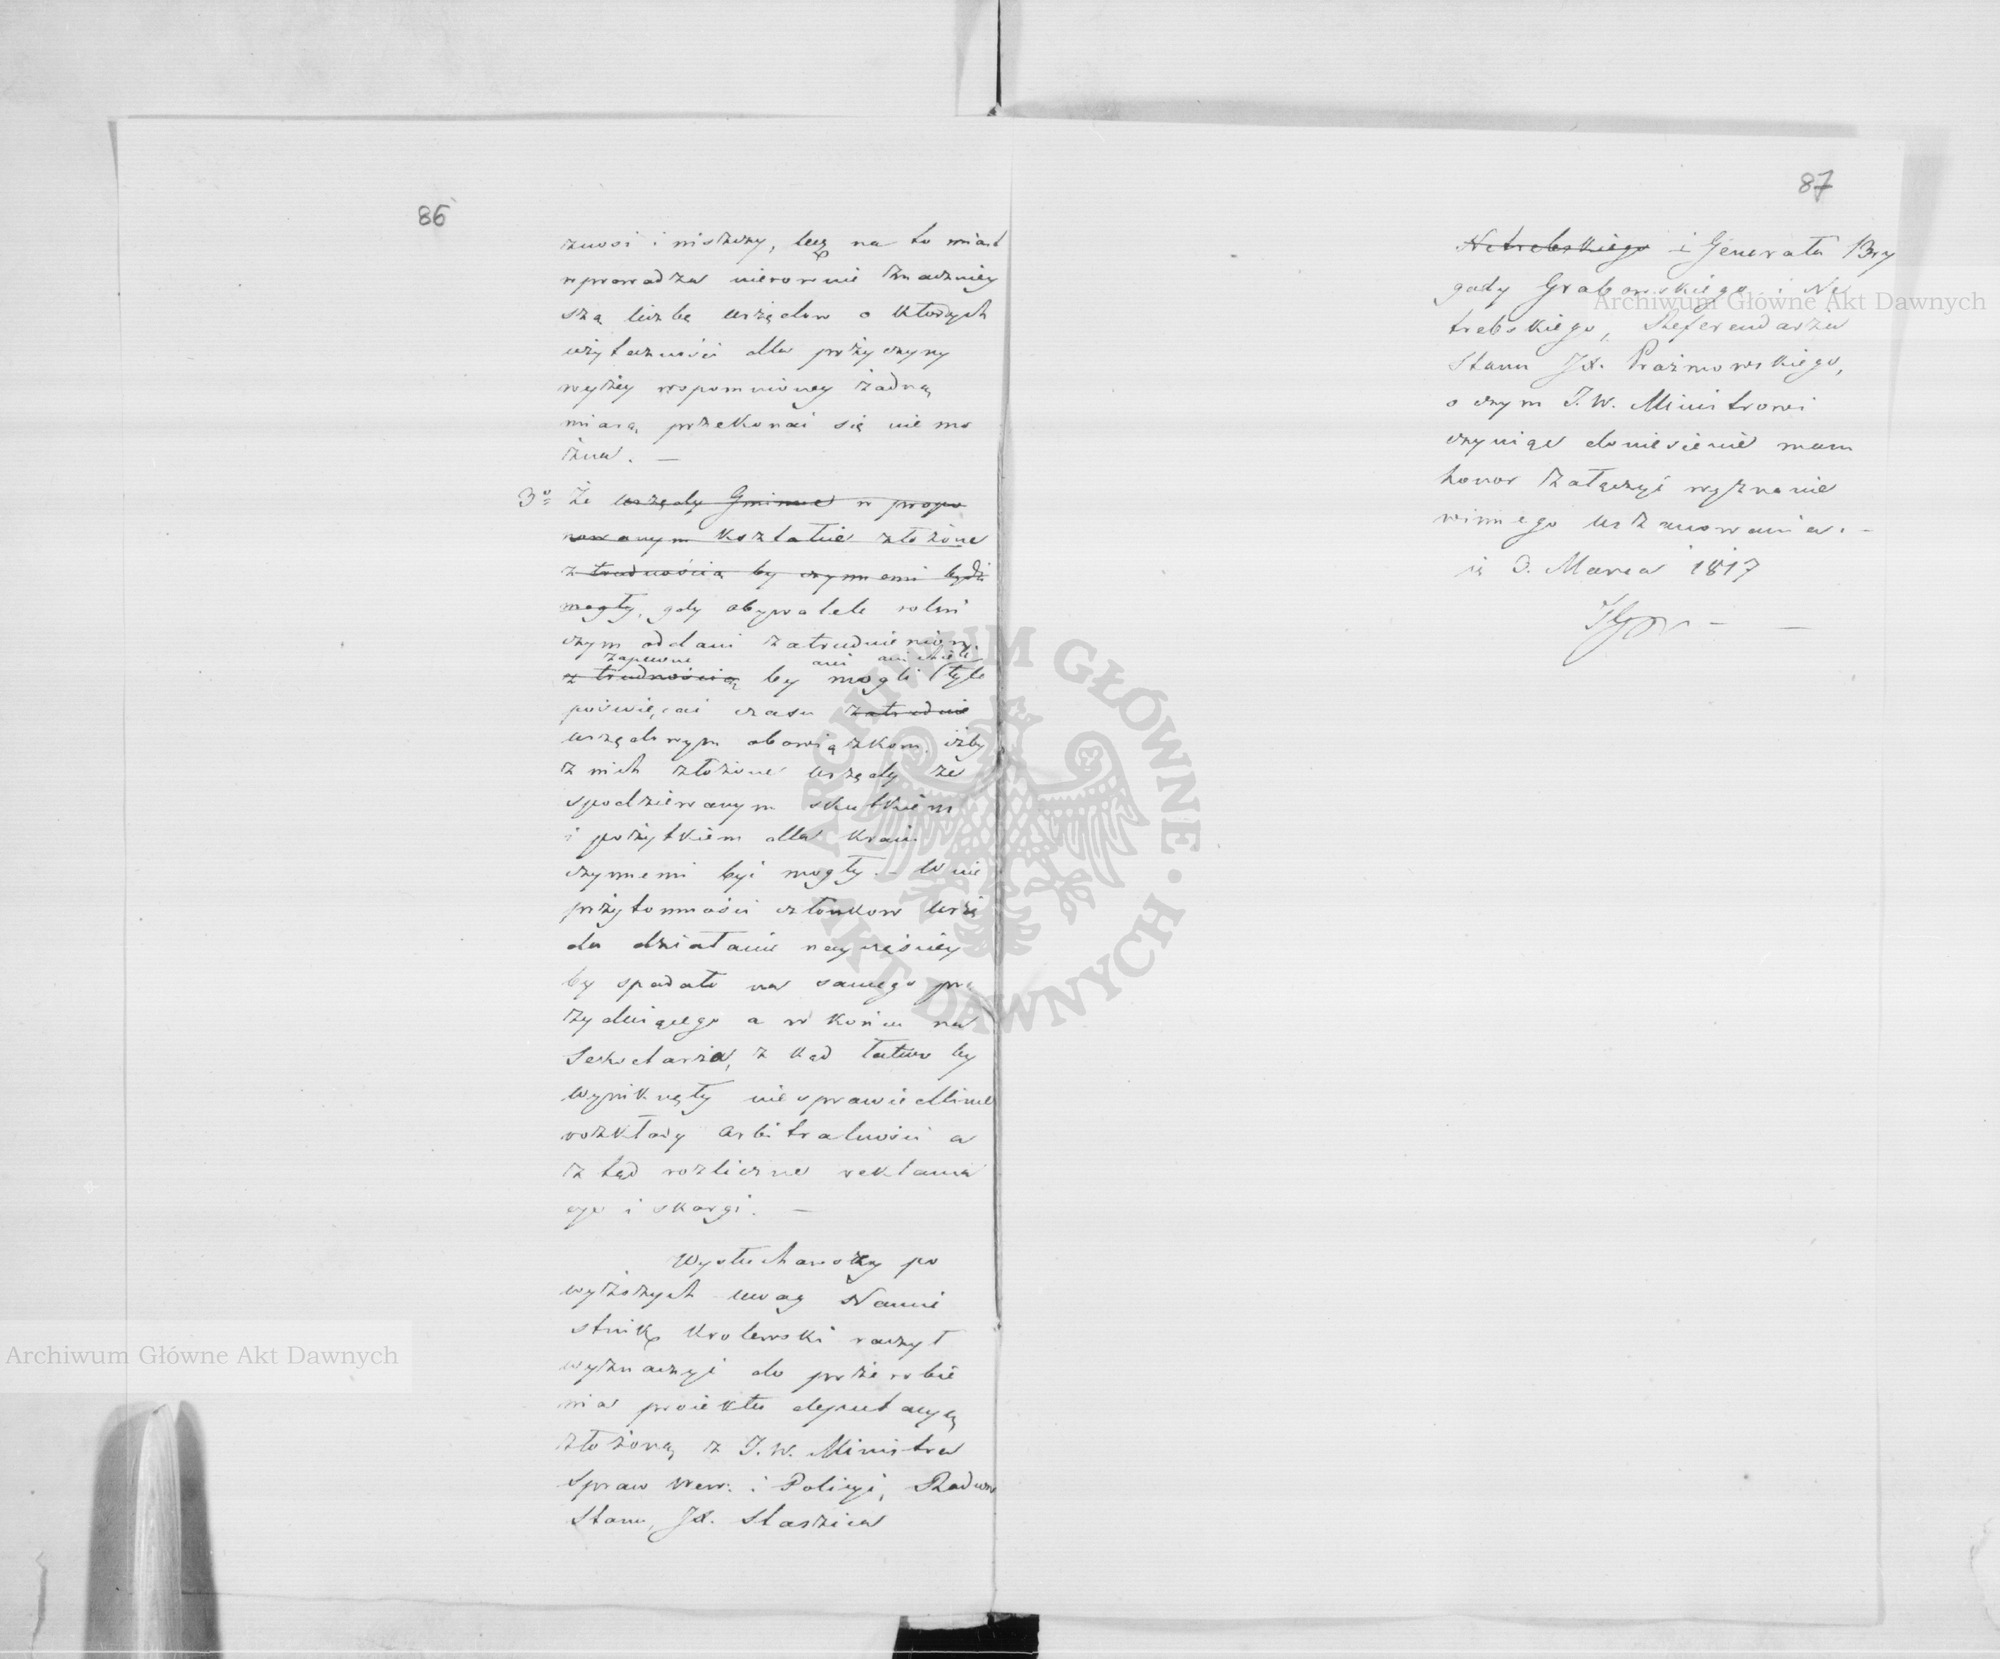 86
znosi i niszczy, lecz na to miast
wprowadza nierownie znaczniey
szą liczbę urzędow o ktorych
użyteczności dla przyczyny
wyżey wspomnioney żadną
miarą przekonać się nie mo
żna. —
3º Że urzędy Gminne w propo
nowanym kształcie złożone
z trudnością by czynnemi bydź
mogły, gdy obywatele rolni
czym oddani zatrudnieniom
zapewne ani ani chcieli
z trudnością by mogli tyle
poświęcać czasu zatrudnie
urzędowym obowiązkom, iżby
z nich złożone urzędy ze
spodziewanym skutkiem
i pożytkiem dla kraiu
czynnemi być mogły. – W nie
przytomności członkow urzę
du działanie nayczęściey
by spadało na samego pre
zyduiącego a w końcu na
Sekretarza, z kąd łatwo by
wyniknęły niesprawiedliwe
rozkłady arbitralności a
z tąd rozliczne reklama
cye i skargi. —
Wysłuchawszy po
wyższych uwag Namie
stnik Krolewski raczył
wyznaczyć do przerobie
nia proiektu deputacyą
złożoną z J. W. Ministra
Spraw Wew: i Policyi, Radcow
Stanu, JX. Staszica
87
Netrebskiego i Generała Bry
gady Grabowskiego i Ne
trebskiego, Referendarza
Stanu JX. Prażmowskiego,
o czym J. W. Ministrowi
czyniąc doniesienie mam
honor załączyć wyznanie
winnego uszanowania. –
3. Marca 1817
Archiwum Główne Akt Dawnych
Archiwum Główne Akt Dawnych
ARCHIWUM GŁÓWNE AKT DAWNYCH